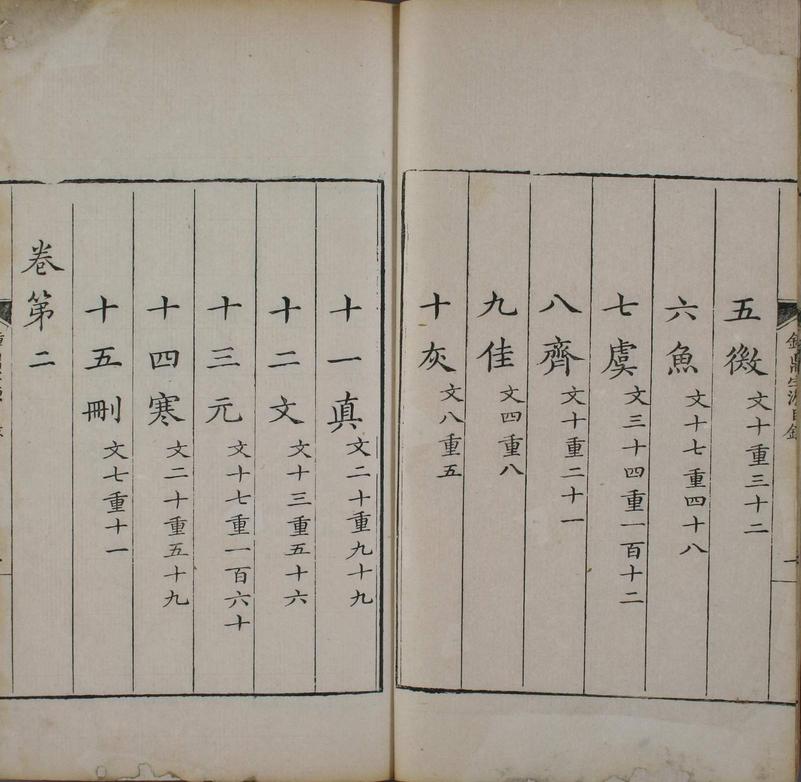 五微文十重三十二
六魚文十七重四十八
七虞文三十四重一百十二
八齊文十重二十一
九佳文四重八
十灰文八重五
十一真文二十重九十九
十二文文十三重五十六
十三元文十七重一百六十
十四寒文二十重五十九
十五刪文七重十一
卷第二